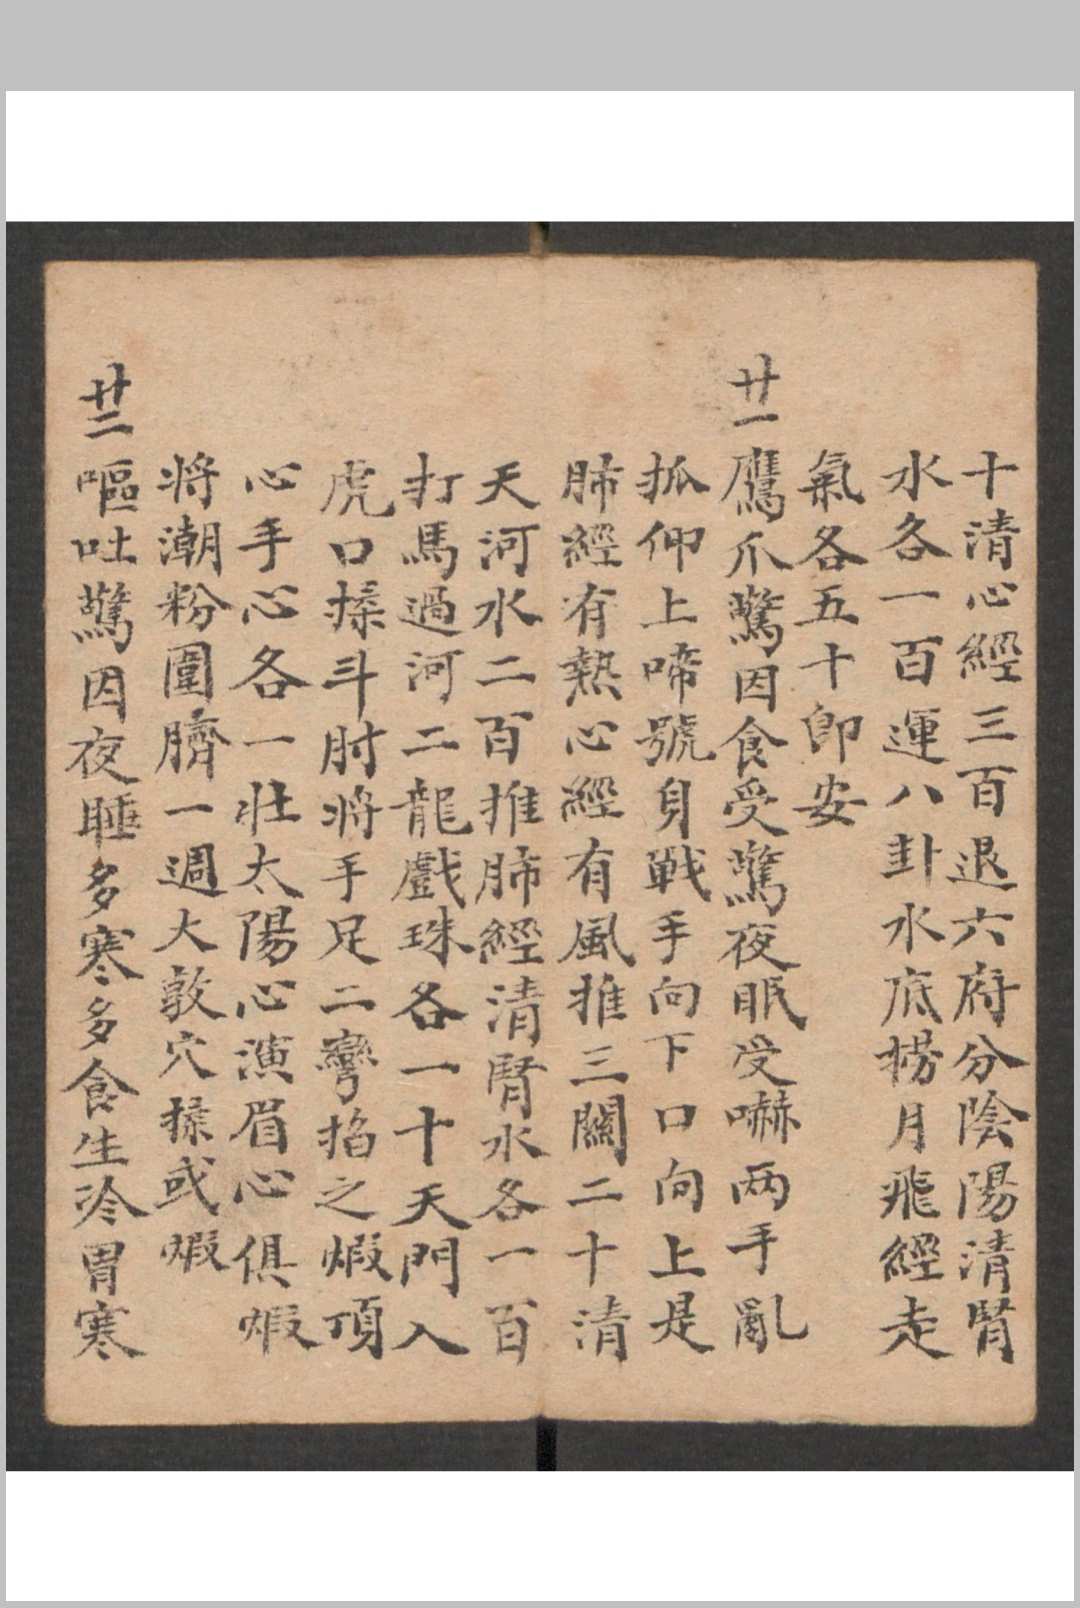 十清心經三百退六府分陰陽清腎
水各一百運八卦水底撈月飛經走
氣各五十即安
廿一鷹爪驚因食受驚夜眠受嚇两手亂
抓仰上啼號身戰手向下口向上是
肺經有熱心經有風推三關二十清
天河水二百推肺經清腎水各一百
打馬過河二龍戲珠各一十天門入
虎口揉斗肘将手足二彎掐之煆頂
心手心各一壯太陽心演眉心俱煆
将潮粉圍臍一週大敦穴揉或煆
廿二嘔吐驚因夜睡多寒多食生冷胃寒